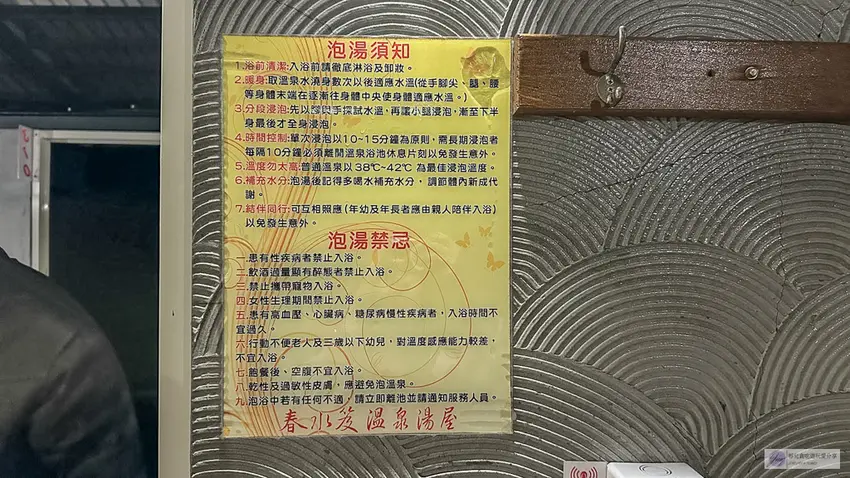 泡湯須知
1.浴前清潔:入浴前請徹底淋浴及卸妝。
2.暖身:取溫泉水澆身數次以後適應水溫(從手腳尖、腿、腰
等身體末端在逐漸往身體中央使身體適應水溫。)
3.分段浸泡:先以腳與手探試水溫，再讓小腿浸泡，漸至下半
身最後才全身浸泡。
4.時間控制:單次浸泡以10~15分鐘為原則，需長期浸泡者
每隔10分鐘必須離開溫泉浴池休息片刻以免發生意外。
5.溫度勿太高:普通溫泉以38℃~42℃為最佳浸泡溫度。
6.補充水分:泡湯後記得多喝水補充水分，調節體內新成代
謝。
7.結伴同行:可互相照應(年幼及年長者應由親人陪伴入浴)
以免發生意外。
泡湯禁忌
一.患有性疾病者禁止入浴。
二.飲酒過量顯有醉態者禁止入浴。
三.禁止攜帶寵物入浴。
四.女性生理期間禁止入浴。
五.患有高血壓、心臟病、糖尿病慢性疾病者，入浴時間不
宜過久。
六.行動不便老人及三歲以下幼兒，對溫度感應能力較差，
不宜入浴。
七.飽餐後、空腹不宜入浴。
八.乾性及過敏性皮膚，應避免泡溫泉。
九.泡浴中若有任何不適，請立即離池並請通知服務人員。
春水笈溫泉湯屋